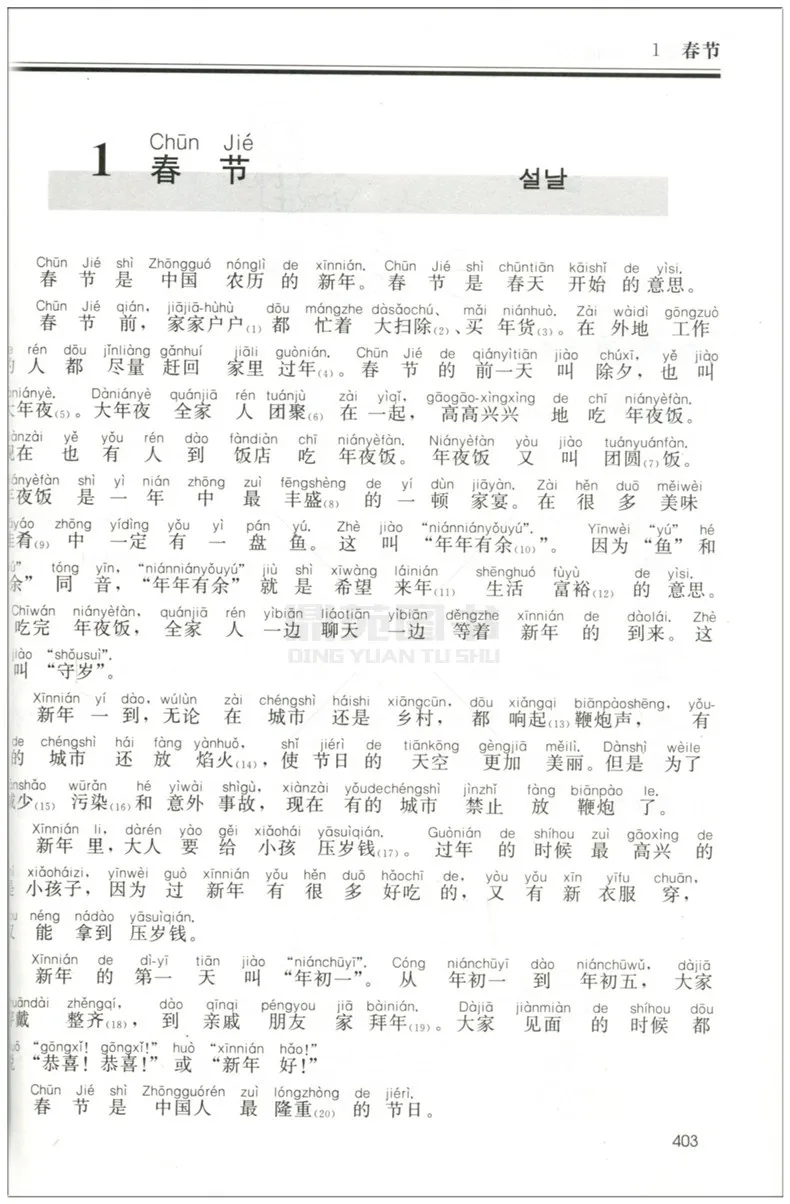 1 春节
Chūn Jié
1 春 节 설날
Chūn Jié shì Zhōngguó nónglì de xīnnián. Chūn Jié shì chūntiān kāishǐ de yìsi.
春 节 是 中国 农历 的 新年。春 节 是 春天 开始 的 意思。
Chūn Jié qián, jiājiā-hùhù dōu mángzhe dàsǎochú、mǎi niánhuò. Zài wàidì gōngzuò
春 节 前，家家户户(1) 都 忙着 大扫除(2)、买 年货(3)。在 外地 工作
rén dōu jǐnliàng gǎnhuí jiāli guònián. Chūn Jié de qiányìtiān jiào chúxī, yě jiào
人 都 尽量 赶回 家里 过年(4)。春 节 的 前一天 叫 除夕，也 叫
niányè. Dàniányè quánjiā rén tuánjù zài yìqǐ, gāogāo-xìngxìng de chī niányèfàn.
大年夜(5)。大年夜 全家 人 团聚(6) 在 一起，高高兴兴 地 吃 年夜饭。
yě yǒu rén dào fàndiàn chī niányèfàn. Niányèfàn yòu jiào tuányuánfàn.
现在 也 有 人 到 饭店 吃 年夜饭。年夜饭 又 叫 团圆(7)饭。
shì yì nián zhōng zuì fēngshèng de yí dùn jiāyàn. Zài hěn duō měiwèi
年夜饭 是 一 年 中 最 丰盛(8) 的 一 顿 家宴。在 很 多 美味
zhōng yídìng yǒu yì pán yú. Zhè jiào “niánniányǒuyú”. Yīnwèi “yú” hé
佳肴(9) 中 一定 有 一 盘 鱼。这 叫 “年年有余(10)”。 因为 “鱼” 和
tóng yīn, “niánniányǒuyú” jiù shì xīwàng láinián shēnghuó fùyù de yìsi.
余” 同 音，“年年有余” 就 是 希望 来年(11) 生活 富裕(12) 的 意思。
Chīwán niányèfàn, quánjiā rén yìbiān liáotiān yìbiān děngzhe xīnnián de dàolái. Zhè
吃完 年夜饭，全家 人 一边 聊天 一边 等着 新年 的 到来。这
jiào “shǒusuì”.
叫 “守岁”。
鼎元图书
DING YUAN TU SHU
Xīnnián yí dào, wúlùn zài chéngshì háishi xiāngcūn, dōu xiǎngqi biānpàoshēng, yǒu-
新年 一 到，无论 在 城市 还是 乡村，都 响起(13) 鞭炮声，有
de chéngshì hái fàng yànhuǒ, shǐ jiérì de tiānkōng gèngjiā měilì. Dànshì wèile
的 城市 还 放 焰火(14)，使 节日 的 天空 更加 美丽。但是 为了
wūrǎn hé yìwài shìgù, xiànzài yǒudechéngshì jìnzhǐ fàng biānpào le.
减少(15) 污染(16)和 意外 事故，现在 有的 城市 禁止 放 鞭炮 了。
Xīnnián li, dàrén yào gěi xiǎohái yāsuìqián. Guònián de shíhou zuì gāoxìng de
新年 里，大人 要 给 小孩 压岁钱(17)。过年 的 时候 最 高兴 的
xiǎoháizi, yīnwèi guò xīnnián yǒu hěn duō hǎochī de, yòu yǒu xīn yīfu chuān,
是 小孩子，因为 过 新年 有 很 多 好吃 的，又 有 新 衣服 穿，
néng nádào yāsuìqián.
又 能 拿到 压岁钱。
Xīnnián de dì-yī tiān jiào “niánchūyī”. Cóng niánchūyī dào niánchūwǔ, dàjiā
新年 的 第一 天 叫 “年初一”。从 年初一 到 年初五，大家
zhěngqí, dào qīnqi péngyou jiā bàinián. Dàjiā jiànmiàn de shíhou dōu
穿戴 整齐(18)，到 亲戚 朋友 家 拜年(19)。大家 见面 的 时候 都
“gōngxǐ! gōngxǐ!” huò “xīnnián hǎo!”
说 “恭喜! 恭喜!” 或 “新年 好!”
Chūn Jié shì Zhōngguórén zuì lóngzhòng de jiérì.
春 节 是 中国人 最 隆重(20) 的 节日。
403